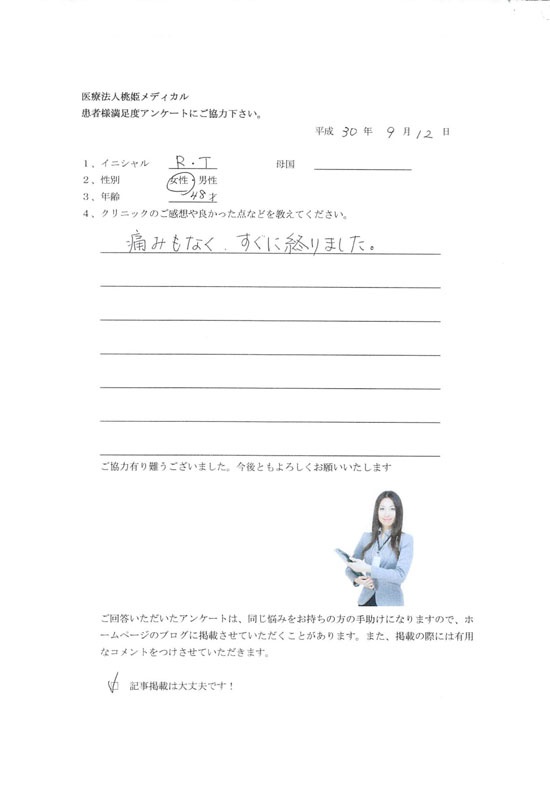 医療法人桃姫メディカル
患者様満足度アンケートにご協力下さい。
平成 30 年 9 月 12 日
1、イニシャル R・T 母国
2、性別 女性・男性
3、年齢 48才
4、クリニックのご感想や良かった点などを教えてください。
痛みもなく、すぐに終りました。
ご協力有り難うございました。今後ともよろしくお願いいたします
ご回答いただいたアンケートは、同じ悩みをお持ちの方の手助けになりますので、ホ
ームページのブログに掲載させていただくことがあります。また、掲載の際には有用
なコメントをつけさせていただきます。
□ 記事掲載は大丈夫です！